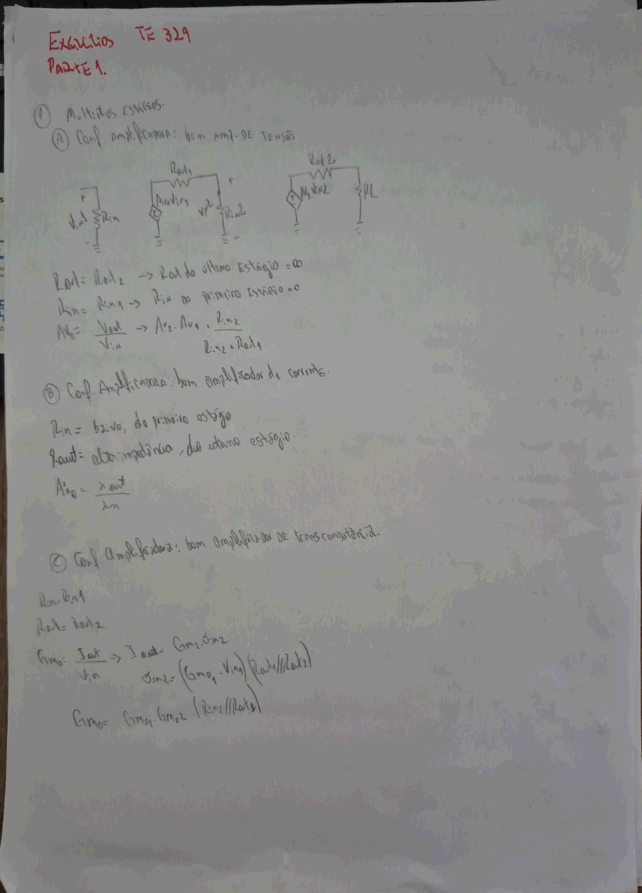 Exercícios TE 329
PARTE 1.
① Múltiplos Estágios.
Ⓐ Conf amplificadora: bom amp. DE TENSÃO
Rout1
Rout2
+
+
Vin1
Rin1
Av1Vin1
Vin2
Rin2
Av2Vin2
RL
-
-
Rout = Rout2 → Rout do último Estágio = ∞
Rin = Rin1 → Rin do primeiro Estágio = 0
Av0 = Vout / Vin → Av2 . Av1 . Rin2 / Rin2 + Rout1
Ⓑ Conf. Amplificadora: bom amplificador de corrente.
Rin = baixo, do primeiro estágio
Rout = alta impedância, do último estágio.
Aio = iout / iin
Ⓒ Conf Amplificadora: bom amplificador DE transcondutância.
Rin = Rin1
Rout = Rout2
Gmo = Iout / Vin → Iout = Gm2 Vin2
Vin2 = (Gmo1 . Vin1) (Rout1//Rout2)
Gmo = Gmo1 . Gmo2 (Rin2//Rout1)